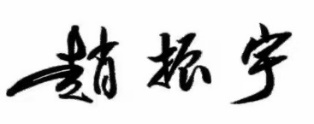 趙振宇